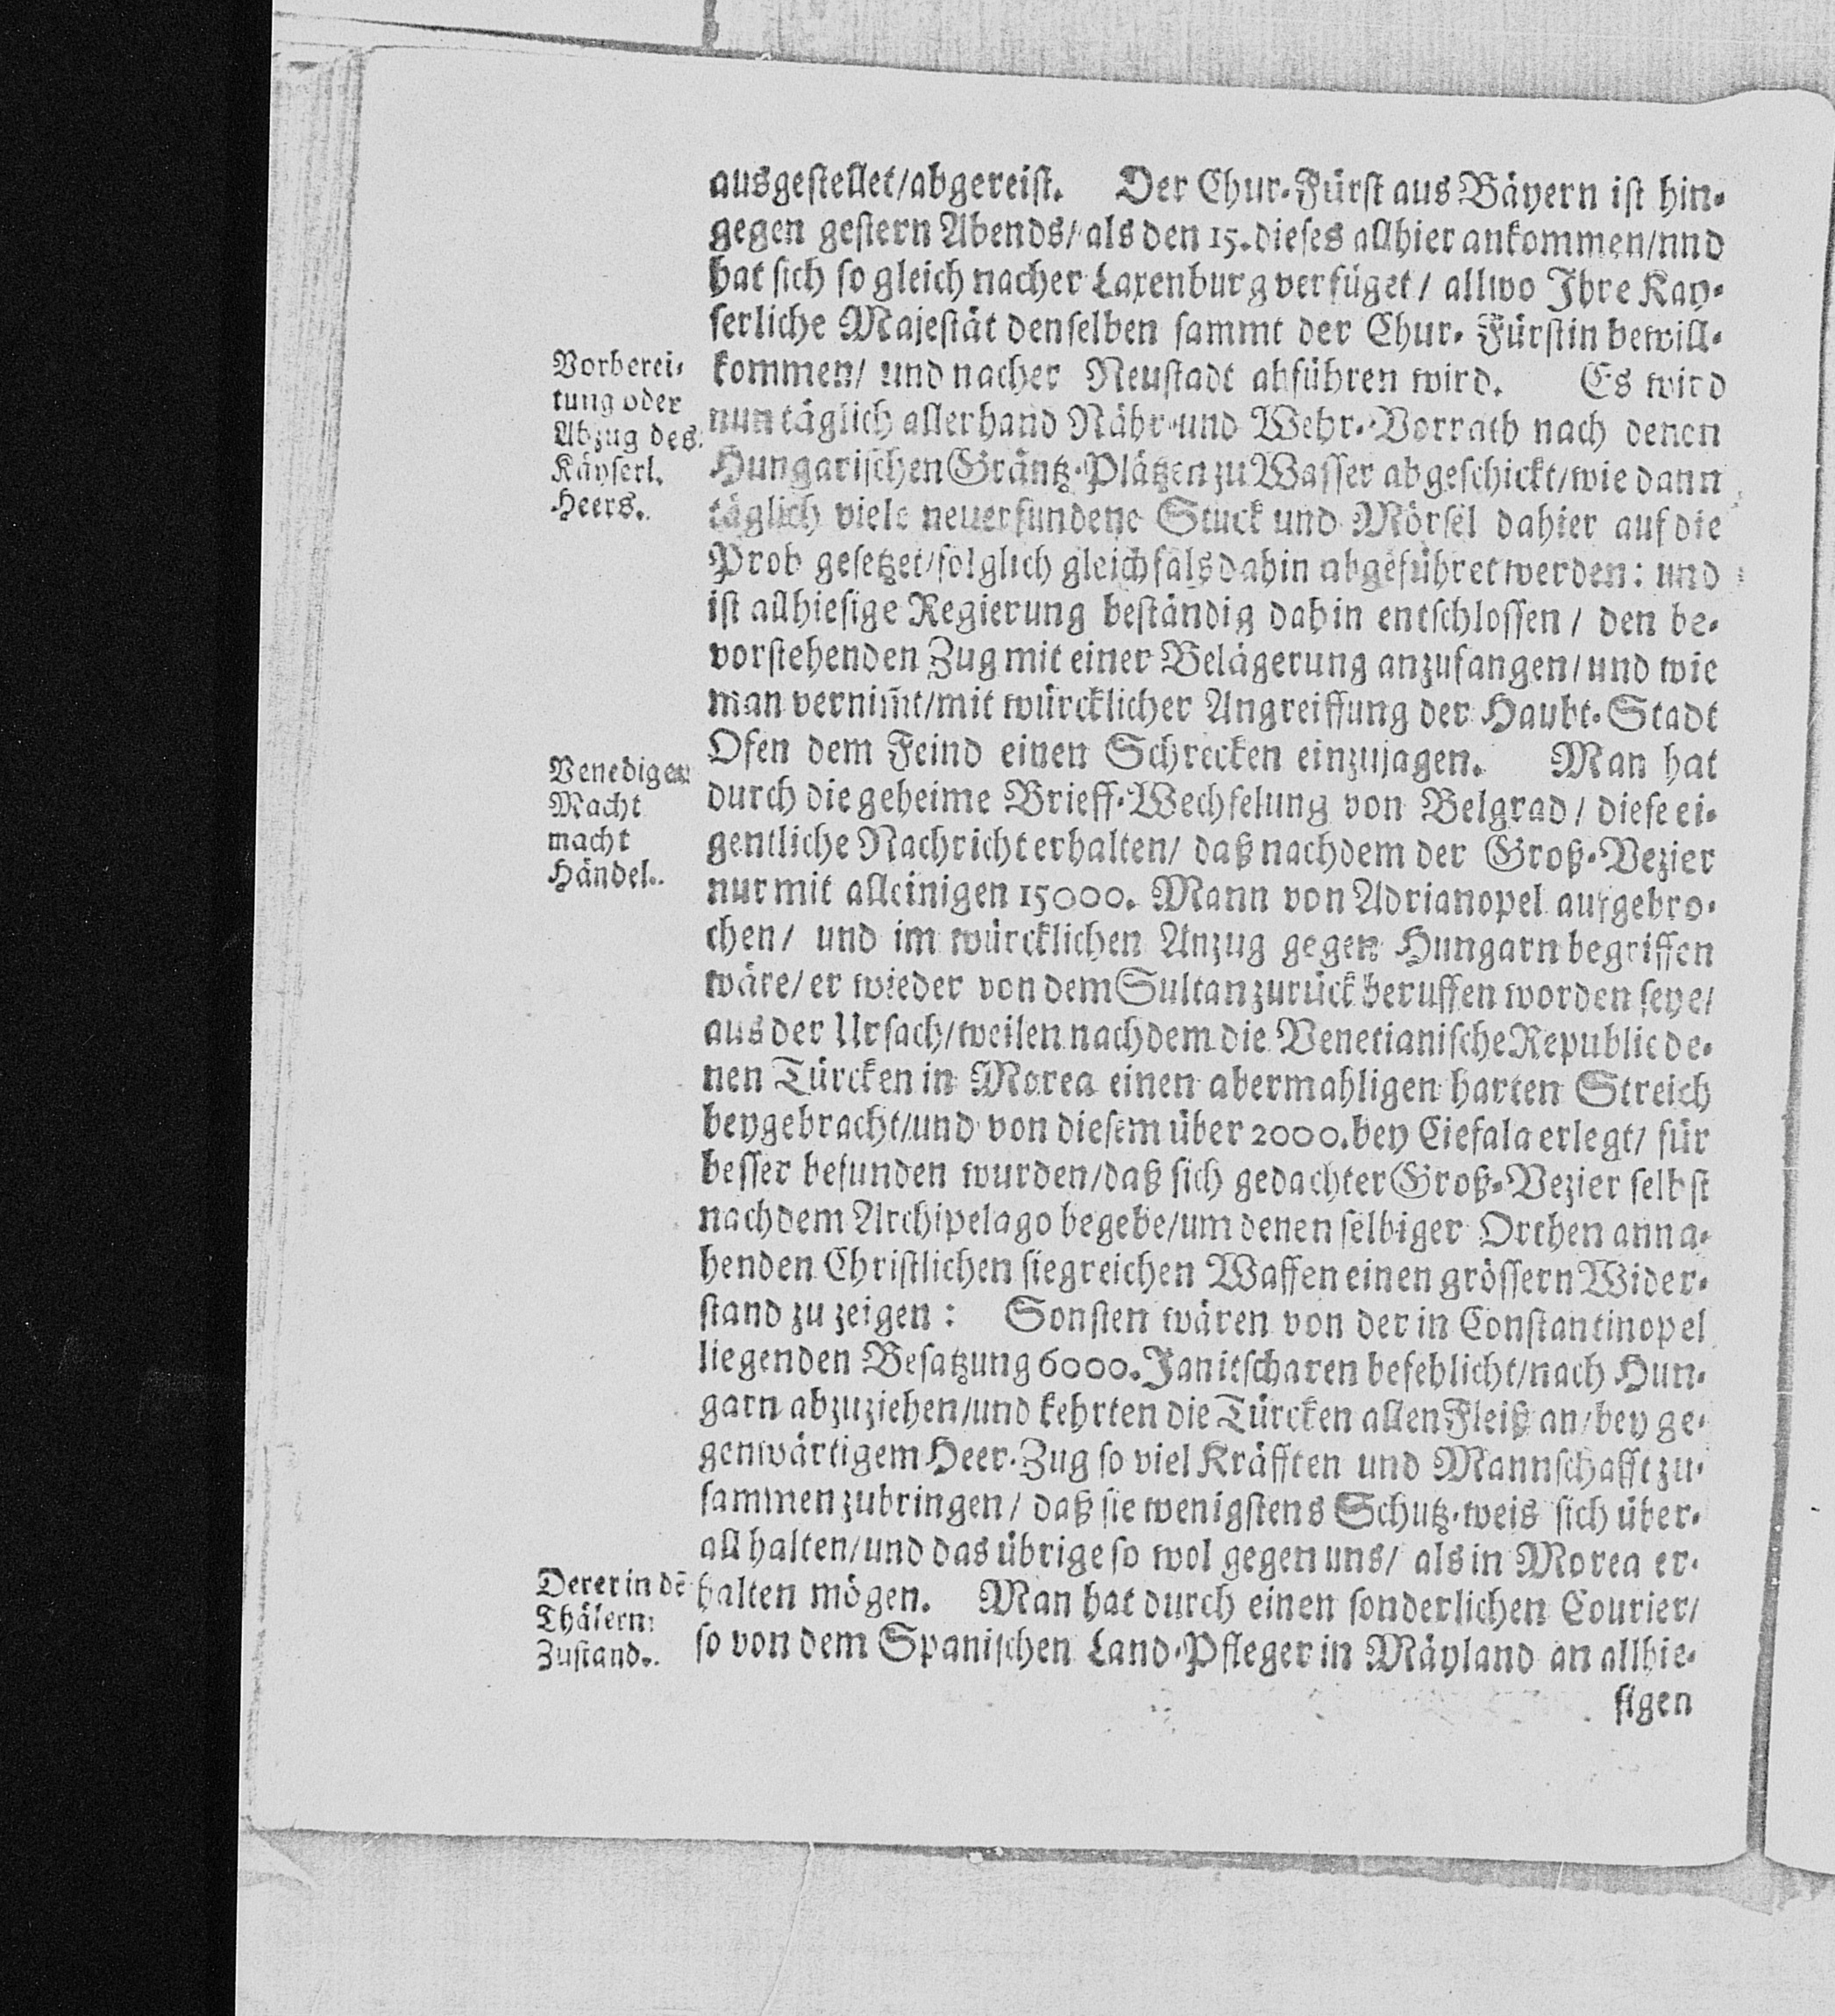 ausgestellet/abgereist. Der Chur-Fürst aus Bäyern ist hin-
gegen gestern Abends/als den 15. dieses allhier ankommen/nnd
hat sich so gleich nacher Laxenburg verfüget/ allwo Ihre Kay-
serliche Majestät denselben sammt der Chur-Fürstin bewill-
kommen/ und nacher Neustadt abführen wird. Es wird
nun täglich allerhand Nähr-und Wehr-Vorrath nach denen
Hungarischen Gräntz-Plätzen zu Wasser abgeschickt/wie dann
täglich viele neuerfundene Stuck und Mörsel dahier auf die
Prob gesetzet/folglich gleichfals dahin abgeführet werden: und
ist allhiesige Regierung beständig dahin entschlossen/ den be-
vorstehenden Zug mit einer Belägerung anzufangen/und wie
man vernim̃t/mit würcklicher Angreiffung der Haubt-Stadt
Ofen dem Feind einen Schrecken einzujagen. Man hat
durch die geheime Brieff-Wechselung von Belgrad/ diese ei-
gentliche Nachricht erhalten/ daß nachdem der Groß-Vezier
nur mit alleinigen 15000. Mann von Adrianopel aufgebro-
chen/ und im würcklichen Anzug gegen Hungarn begriffen
wäre/er wieder von dem Sultan zurück beruffen worden seye/
aus der Ursach/weilen nachdem die Venetianische Republic de-
nen Türcken in Morea einen abermahligen harten Streich
beygebracht/und von diesem über 2000. bey Ciefala erlegt/ für
besser befunden wurden/daß sich gedachter Groß-Vezier selbst
nach dem Archipelago begebe/um denen selbiger Orthen anna-
henden Christlichen siegreichen Waffen einen grössern Wider-
stand zu zeigen: Sonsten wären von der in Constantinopel
liegenden Besatzung 6000. Janitscharen befehlicht/nach Hun-
garn abzuziehen/und kehrten die Türcken allen Fleiß an/bey ge-
genwärtigem Heer-Zug so viel Kräfften und Mannschafft zu-
sammen zubringen/ daß sie wenigstens Schutz-weis sich über-
all halten/und das übrige so wol gegen uns/ als in Morea er-
halten mögen. Man hat durch einen sonderlichen Courier/
so von dem Spanischen Land-Pfleger in Mäyland an allhie-
sigen
Vorberei-
tung oder
Abzug des
Käyserl.
Heers.
Venediger
Macht
macht
Händel.
Derer in dẽ
Thälern
Zustand.